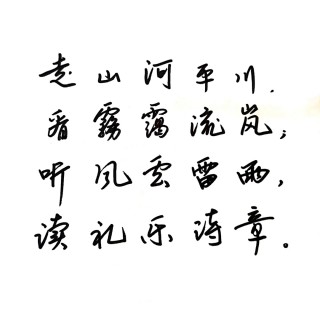 走山河平川,
看雾霭流岚;
听风雲雷雨,
读礼乐诗章。